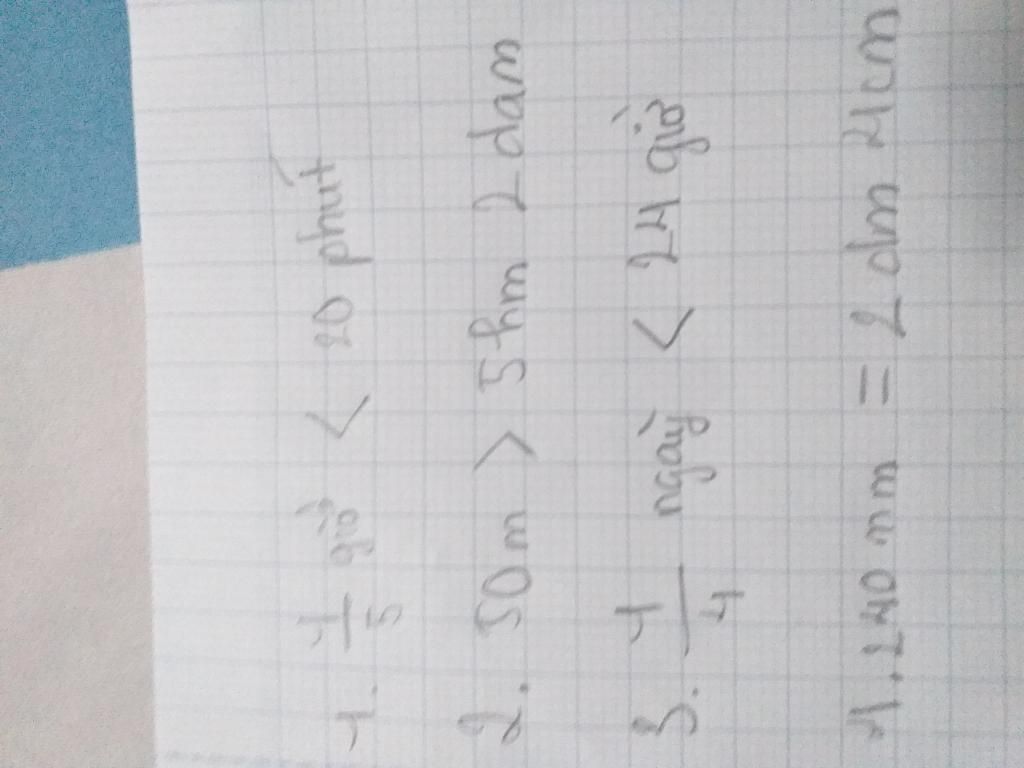 1. 1/5 giờ < 20 phút
2. 50m > 5hm 2 dam
3. 1/4 ngày < 24 giờ
4. 240 mm = 2 dm 4cm